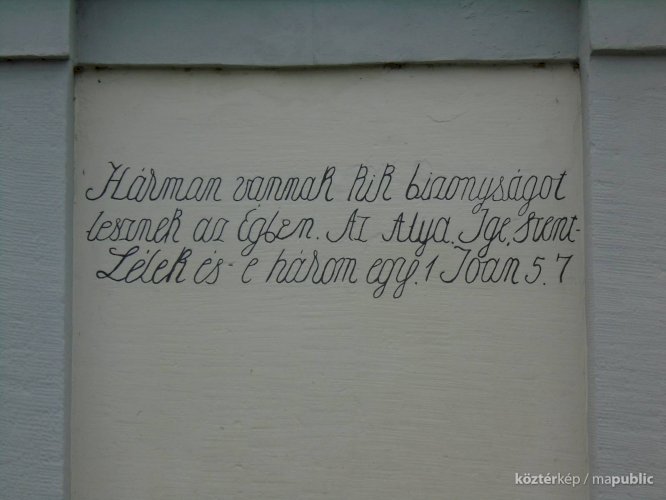 Hárman vannak kik bizonyságot
tesznek az Égben. Az Atya. Ige, Szent-
Lélek és e három egy. 1 Joan 5. 7
köztérkép / mapublic